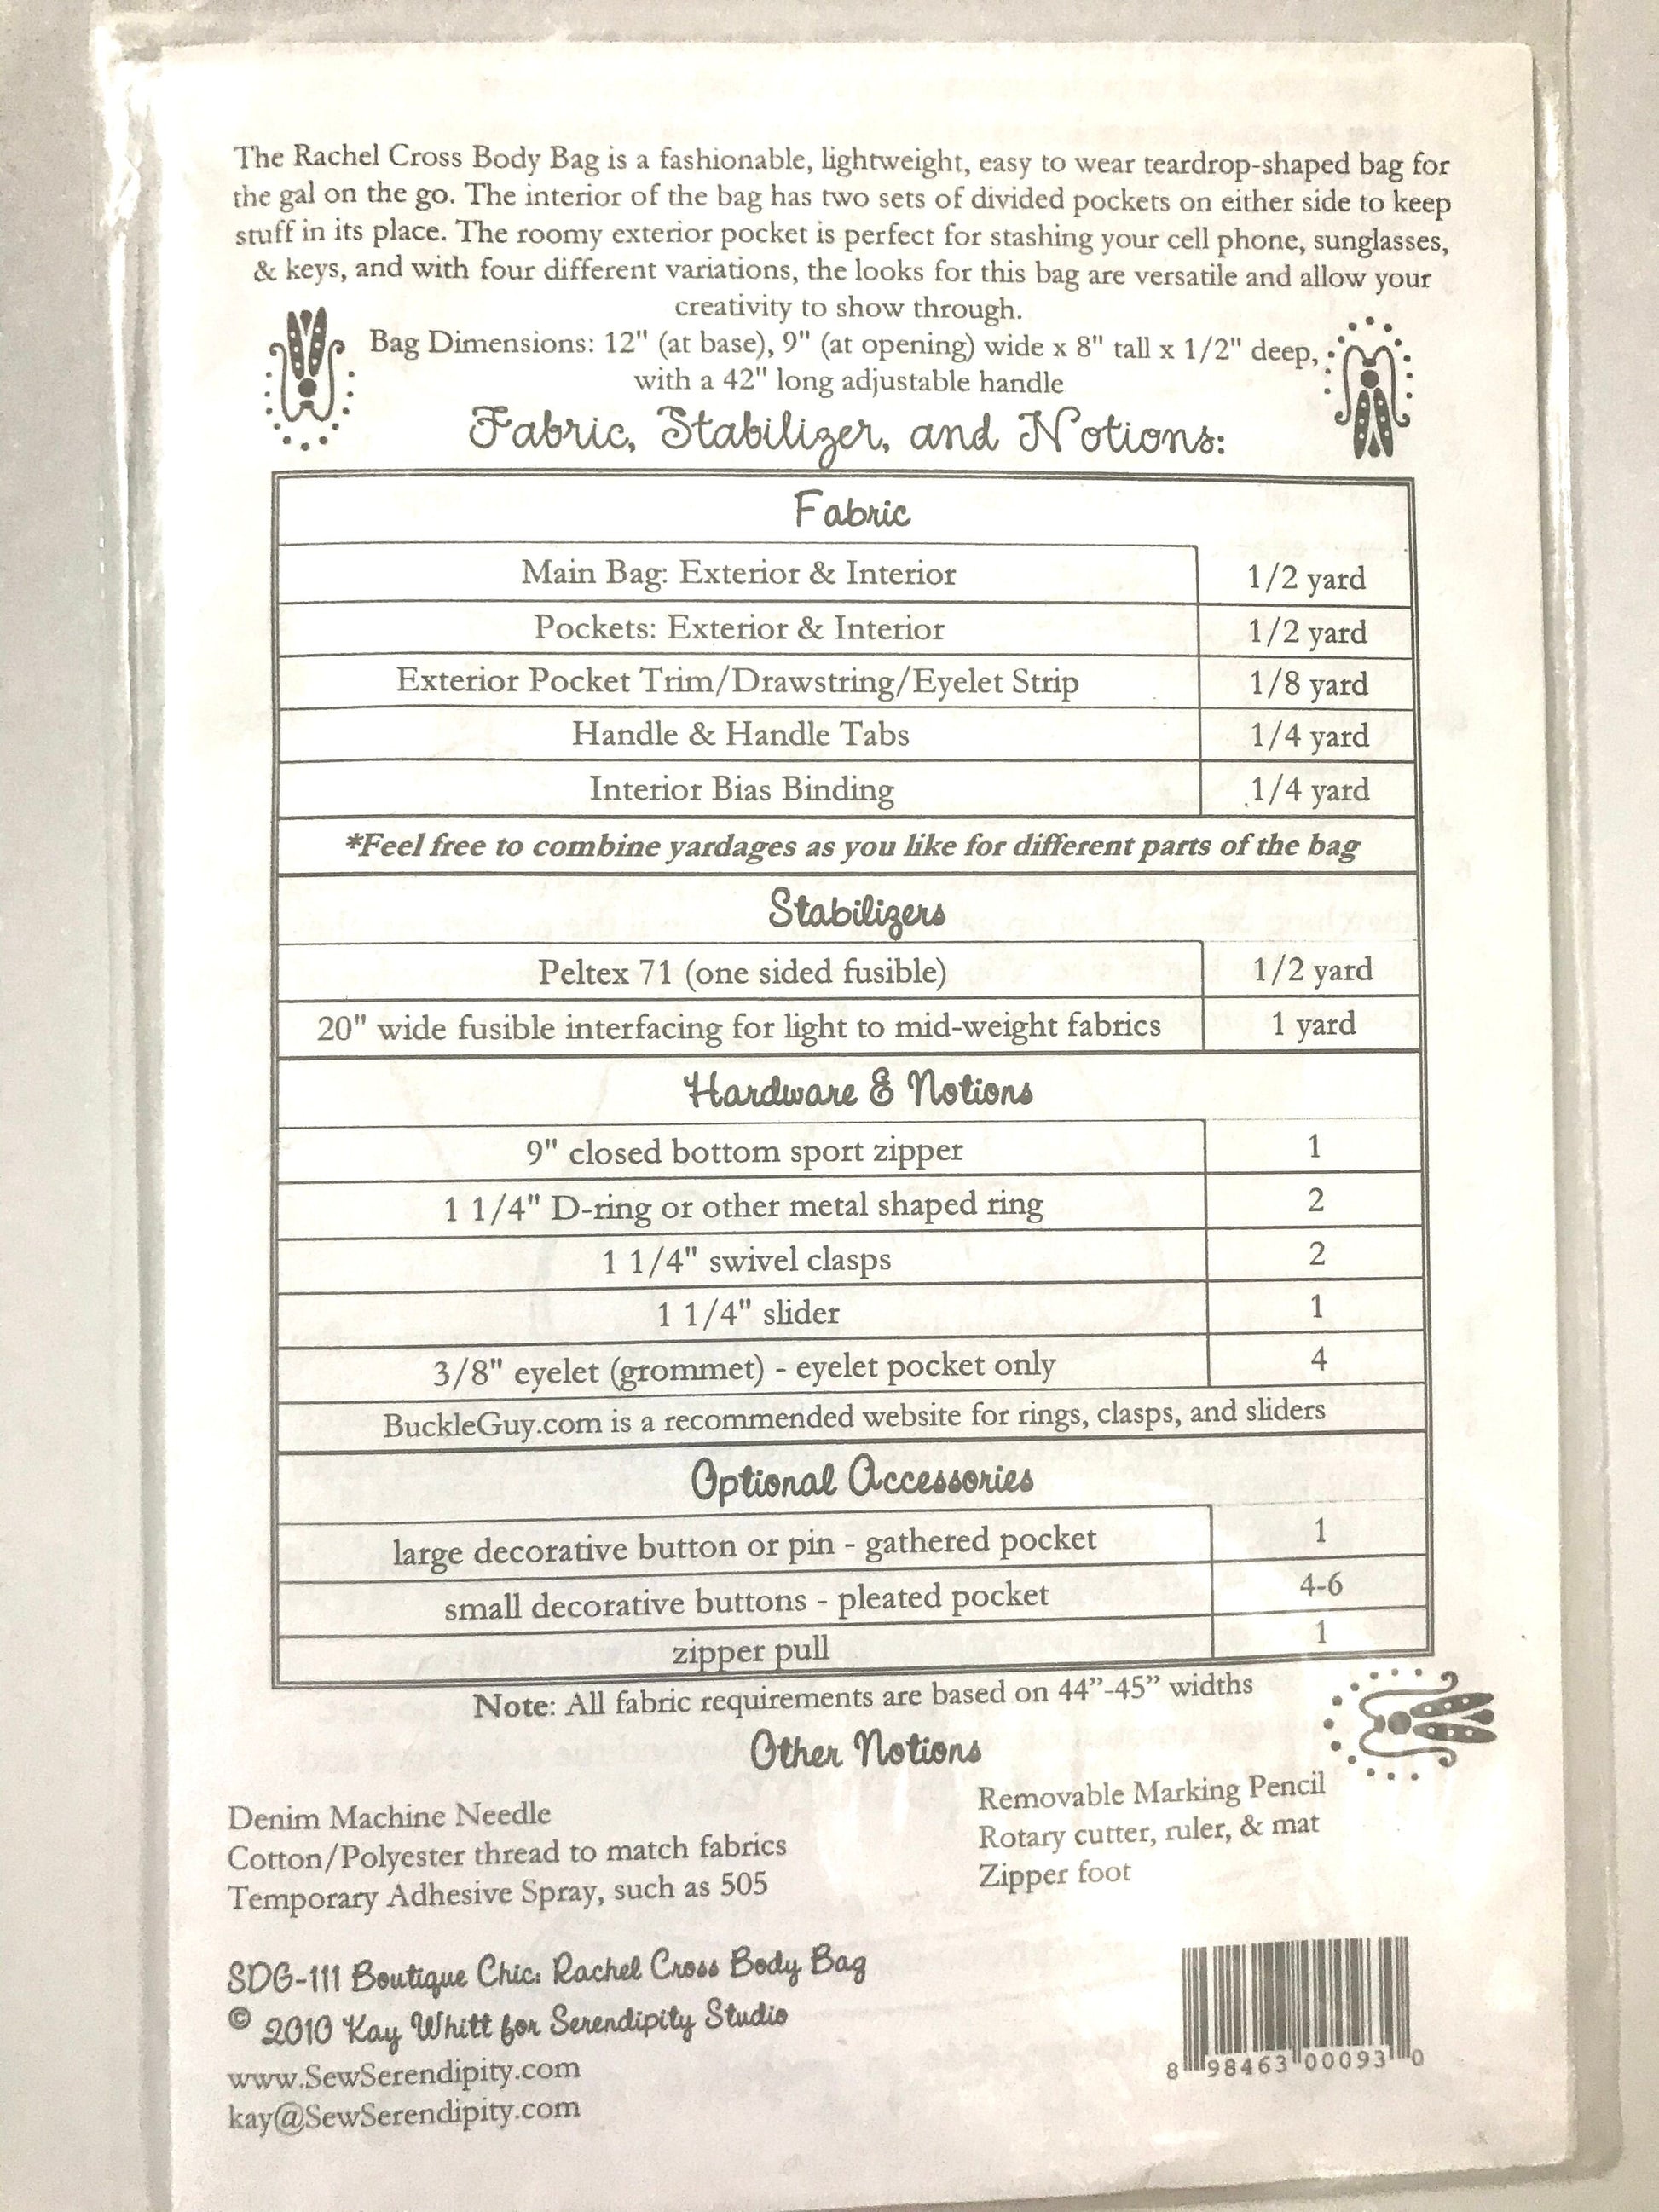 The Rachel Cross Body Bag is a fashionable, lightweight, easy to wear teardrop-shaped bag for
the gal on the go. The interior of the bag has two sets of divided pockets on either side to keep
stuff in its place. The roomy exterior pocket is perfect for stashing your cell phone, sunglasses,
& keys, and with four different variations, the looks for this bag are versatile and allow your
creativity to show through.
Bag Dimensions: 12" (at base), 9" (at opening) wide x 8" tall x 1/2" deep,
with a 42" long adjustable handle
Fabric, Stabilizer, and Notions:
Fabric
Main Bag: Exterior & Interior 1/2 yard
Pockets: Exterior & Interior 1/2 yard
Exterior Pocket Trim/Drawstring/Eyelet Strip 1/8 yard
Handle & Handle Tabs 1/4 yard
Interior Bias Binding 1/4 yard
*Feel free to combine yardages as you like for different parts of the bag
Stabilizers
Peltex 71 (one sided fusible) 1/2 yard
20" wide fusible interfacing for light to mid-weight fabrics 1 yard
Hardware & Notions
9" closed bottom sport zipper 1
1 1/4" D-ring or other metal shaped ring 2
1 1/4" swivel clasps 2
1 1/4" slider 1
3/8" eyelet (grommet) - eyelet pocket only 4
BuckleGuy.com is a recommended website for rings, clasps, and sliders
Optional Accessories
large decorative button or pin - gathered pocket 1
small decorative buttons - pleated pocket 4-6
zipper pull 1
Note: All fabric requirements are based on 44”-45” widths
Other Notions
Denim Machine Needle
Cotton/Polyester thread to match fabrics
Temporary Adhesive Spray, such as 505
Removable Marking Pencil
Rotary cutter, ruler, & mat
Zipper foot
SDG-111 Boutique Chic: Rachel Cross Body Bag
© 2010 Kay Whitt for Serendipity Studio
www.SewSerendipity.com
kay@SewSerendipity.com
8 98463 00093 0